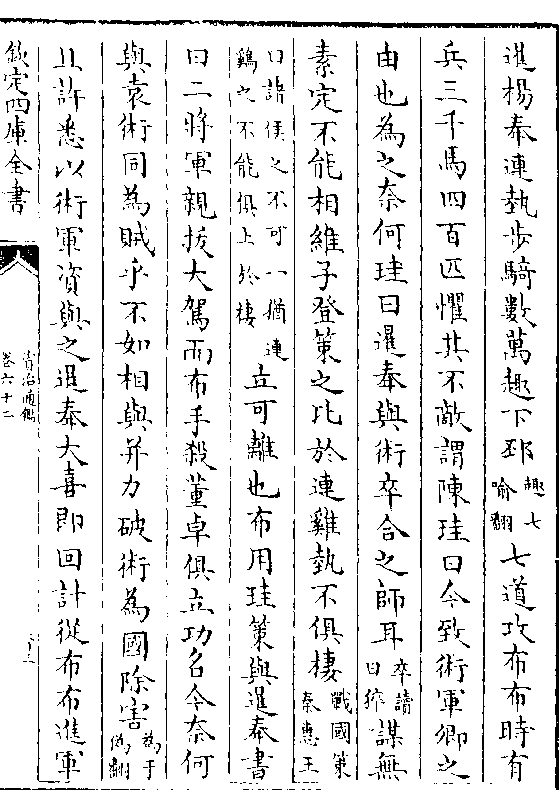 暹楊奉連𫝑步騎數萬趣下邳趣七喻翻七道攻布布時有
兵三千馬四百匹懼其不敵謂陳珪曰今致術軍卿之
由也為之奈何珪曰暹奉與術卒合之師耳卒讀曰猝謀無
素定不能相維子登策之比於連雞𫝑不俱棲戰國策秦惠王
曰諸侯之不可一猶連鷄之不能俱上於棲立可離也布用珪策與暹奉書
曰二將軍親拔大駕而布手殺董卓俱立功名今奈何
與袁術同為賊乎不如相與并力破術為國除害為于偽翻
且許悉以術軍資與之暹奉大喜即回計從布布進軍
欽定四庫全書
資治通鑑
卷六十二